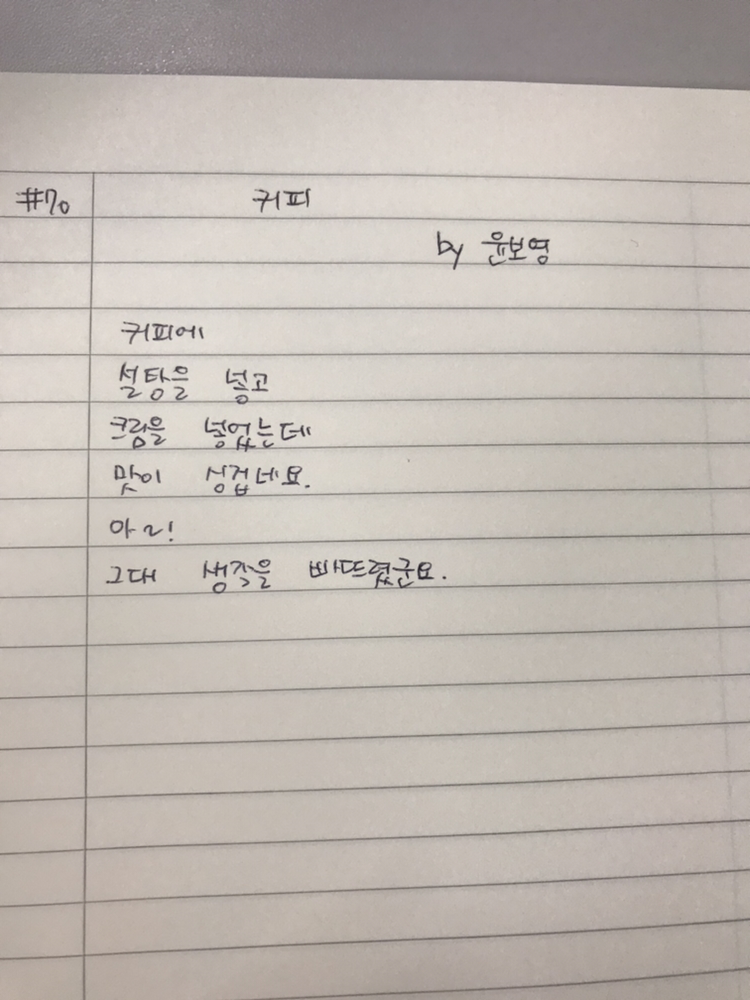 #70
커피
by 윤보영
커피에
설탕을 넣고
크림을 넣었는데
맛이 싱겁네요.
아~!
그대 생각을 빠뜨렸군요.